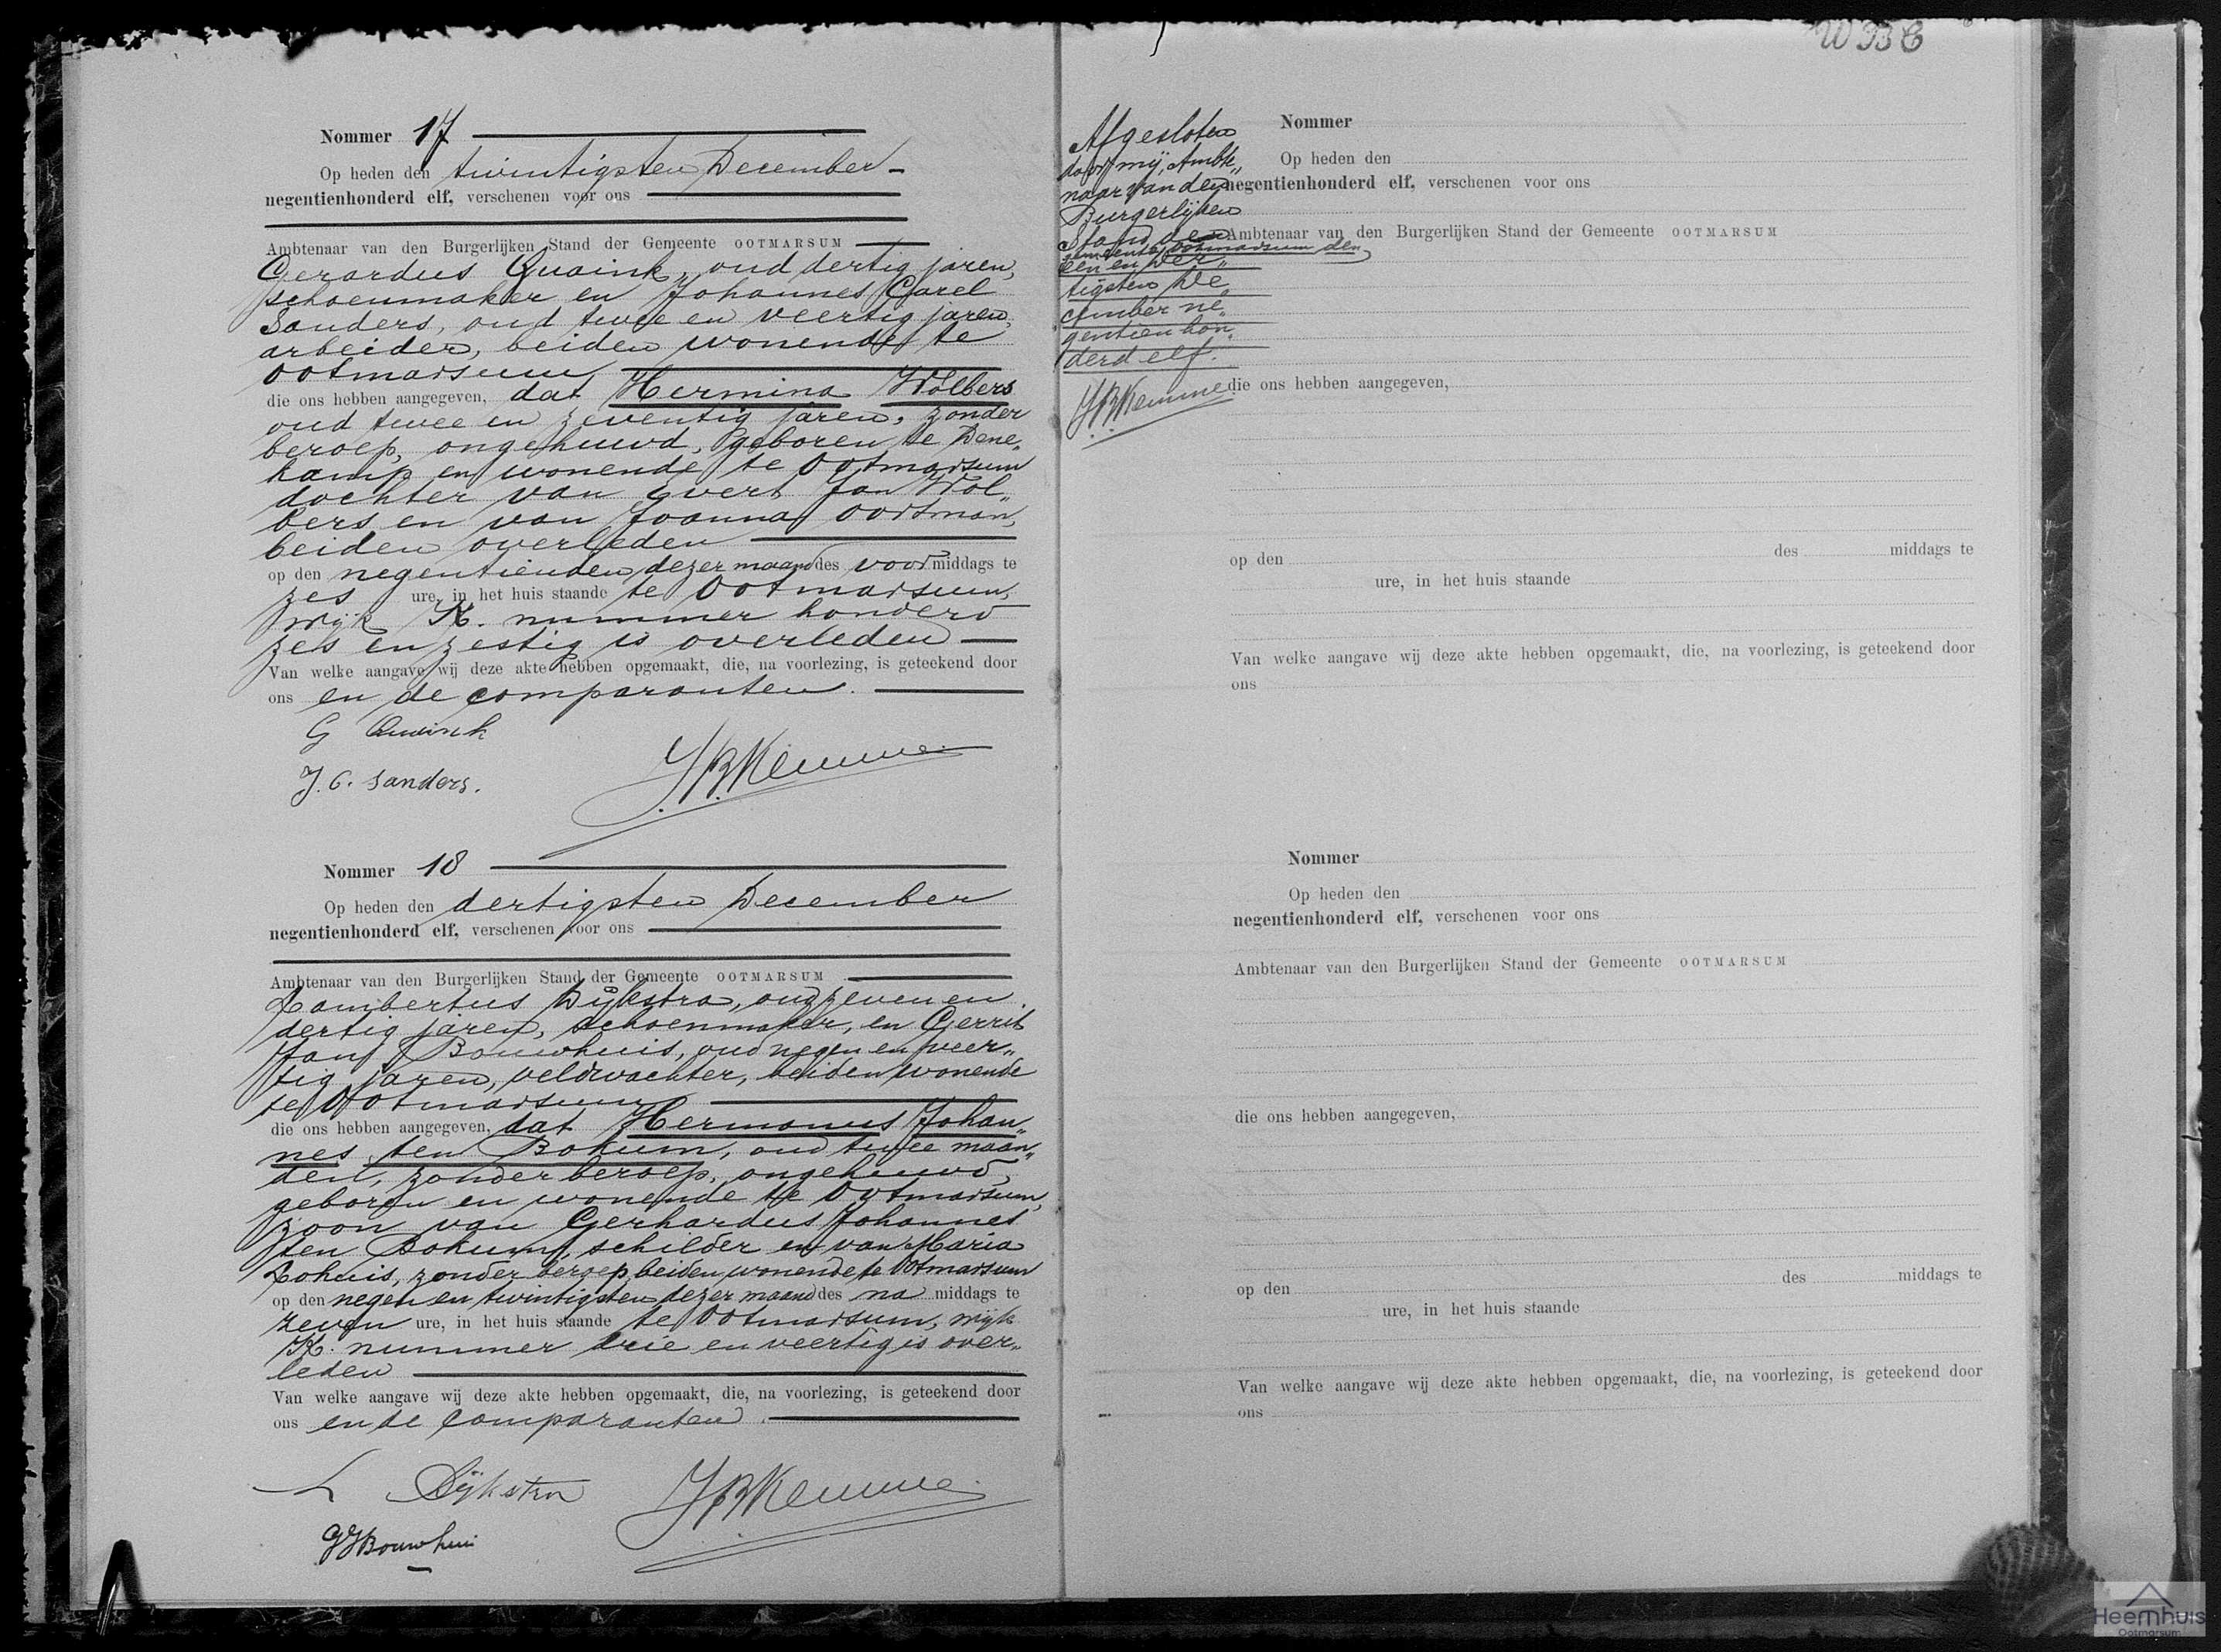 Nommer 17
Op heden den twintigsten December
negentienhonderd elf, verschenen voor ons
Ambtenaar van den Burgerlijken Stand der Gemeente OOTMARSUM
Gerardus Quaink, oud dertig jaren,
schoenmaker en Johannes Carel
Sanders, oud twee en veertig jaren,
arbeider, beiden wonende te
Ootmarsum
die ons hebben aangegeven, dat Hermina Wolbers
oud twee en zeventig jaren, zonder
beroep, ongehuwd, geboren te Dene„
kamp en wonende te Ootmarsum
dochter van Evert Jan Wol„
bers en van Joanna Oortman,
beiden overleden
op den negentienden dezer maand des voormiddags te
zes ure, in het huis staande te Ootmarsum,
wijk K. nummer honderd
zes en zestig is overleden
Van welke aangave wij deze akte hebben opgemaakt, die, na voorlezing, is geteekend door
ons en de comparanten.
G Quaink
J. C. Sanders.
JBKemme
Nommer 18
Op heden den dertigsten December
negentienhonderd elf, verschenen voor ons
Ambtenaar van den Burgerlijken Stand der Gemeente OOTMARSUM
Lambertus Dijkstra, oud zeven en
dertig jaren, schoenmaker, en Gerrit
Jan Bouwhuis, oud negen en veer„
tig jaren, veldwachter, beiden wonende
te Ootmarsum
die ons hebben aangegeven, dat Hermanus Johan„
nes ten Bokum, oud twee maan„
den, zonder beroep, ongehuwd,
geboren en wonende te Ootmarsum,
zoon van Gerhardus Johannes
ten Bokum, schilder en van Maria
Lohuis, zonder beroep, beiden wonende te Ootmarsum
op den negen en twintigsten dezer maand des na middags te
zeven ure, in het huis staande te Ootmarsum, wijk
K. nummer drie en veertig is over„
leden
Van welke aangave wij deze akte hebben opgemaakt, die, na voorlezing, is geteekend door
ons en de comparanten.
L Dijkstra
JBKemme
GJBouwhuis
WBC
Afgesloten
door mij, Ambte„
naar van den
Burgerlijken
Stand der
gemeente Ootmarsum den
een en der„
tigsten De„
cember ne„
gentien hon„
derd elf.
JBKemme
Nommer
Op heden den
negentienhonderd elf, verschenen voor ons
Ambtenaar van den Burgerlijken Stand der Gemeente OOTMARSUM
die ons hebben aangegeven,
op den des middags te
ure, in het huis staande
Van welke aangave wij deze akte hebben opgemaakt, die, na voorlezing, is geteekend door
ons
Nommer
Op heden den
negentienhonderd elf, verschenen voor ons
Ambtenaar van den Burgerlijken Stand der Gemeente OOTMARSUM
die ons hebben aangegeven,
op den des middags te
ure, in het huis staande
Van welke aangave wij deze akte hebben opgemaakt, die, na voorlezing, is geteekend door
ons
Heemhuis
Ootmarsum